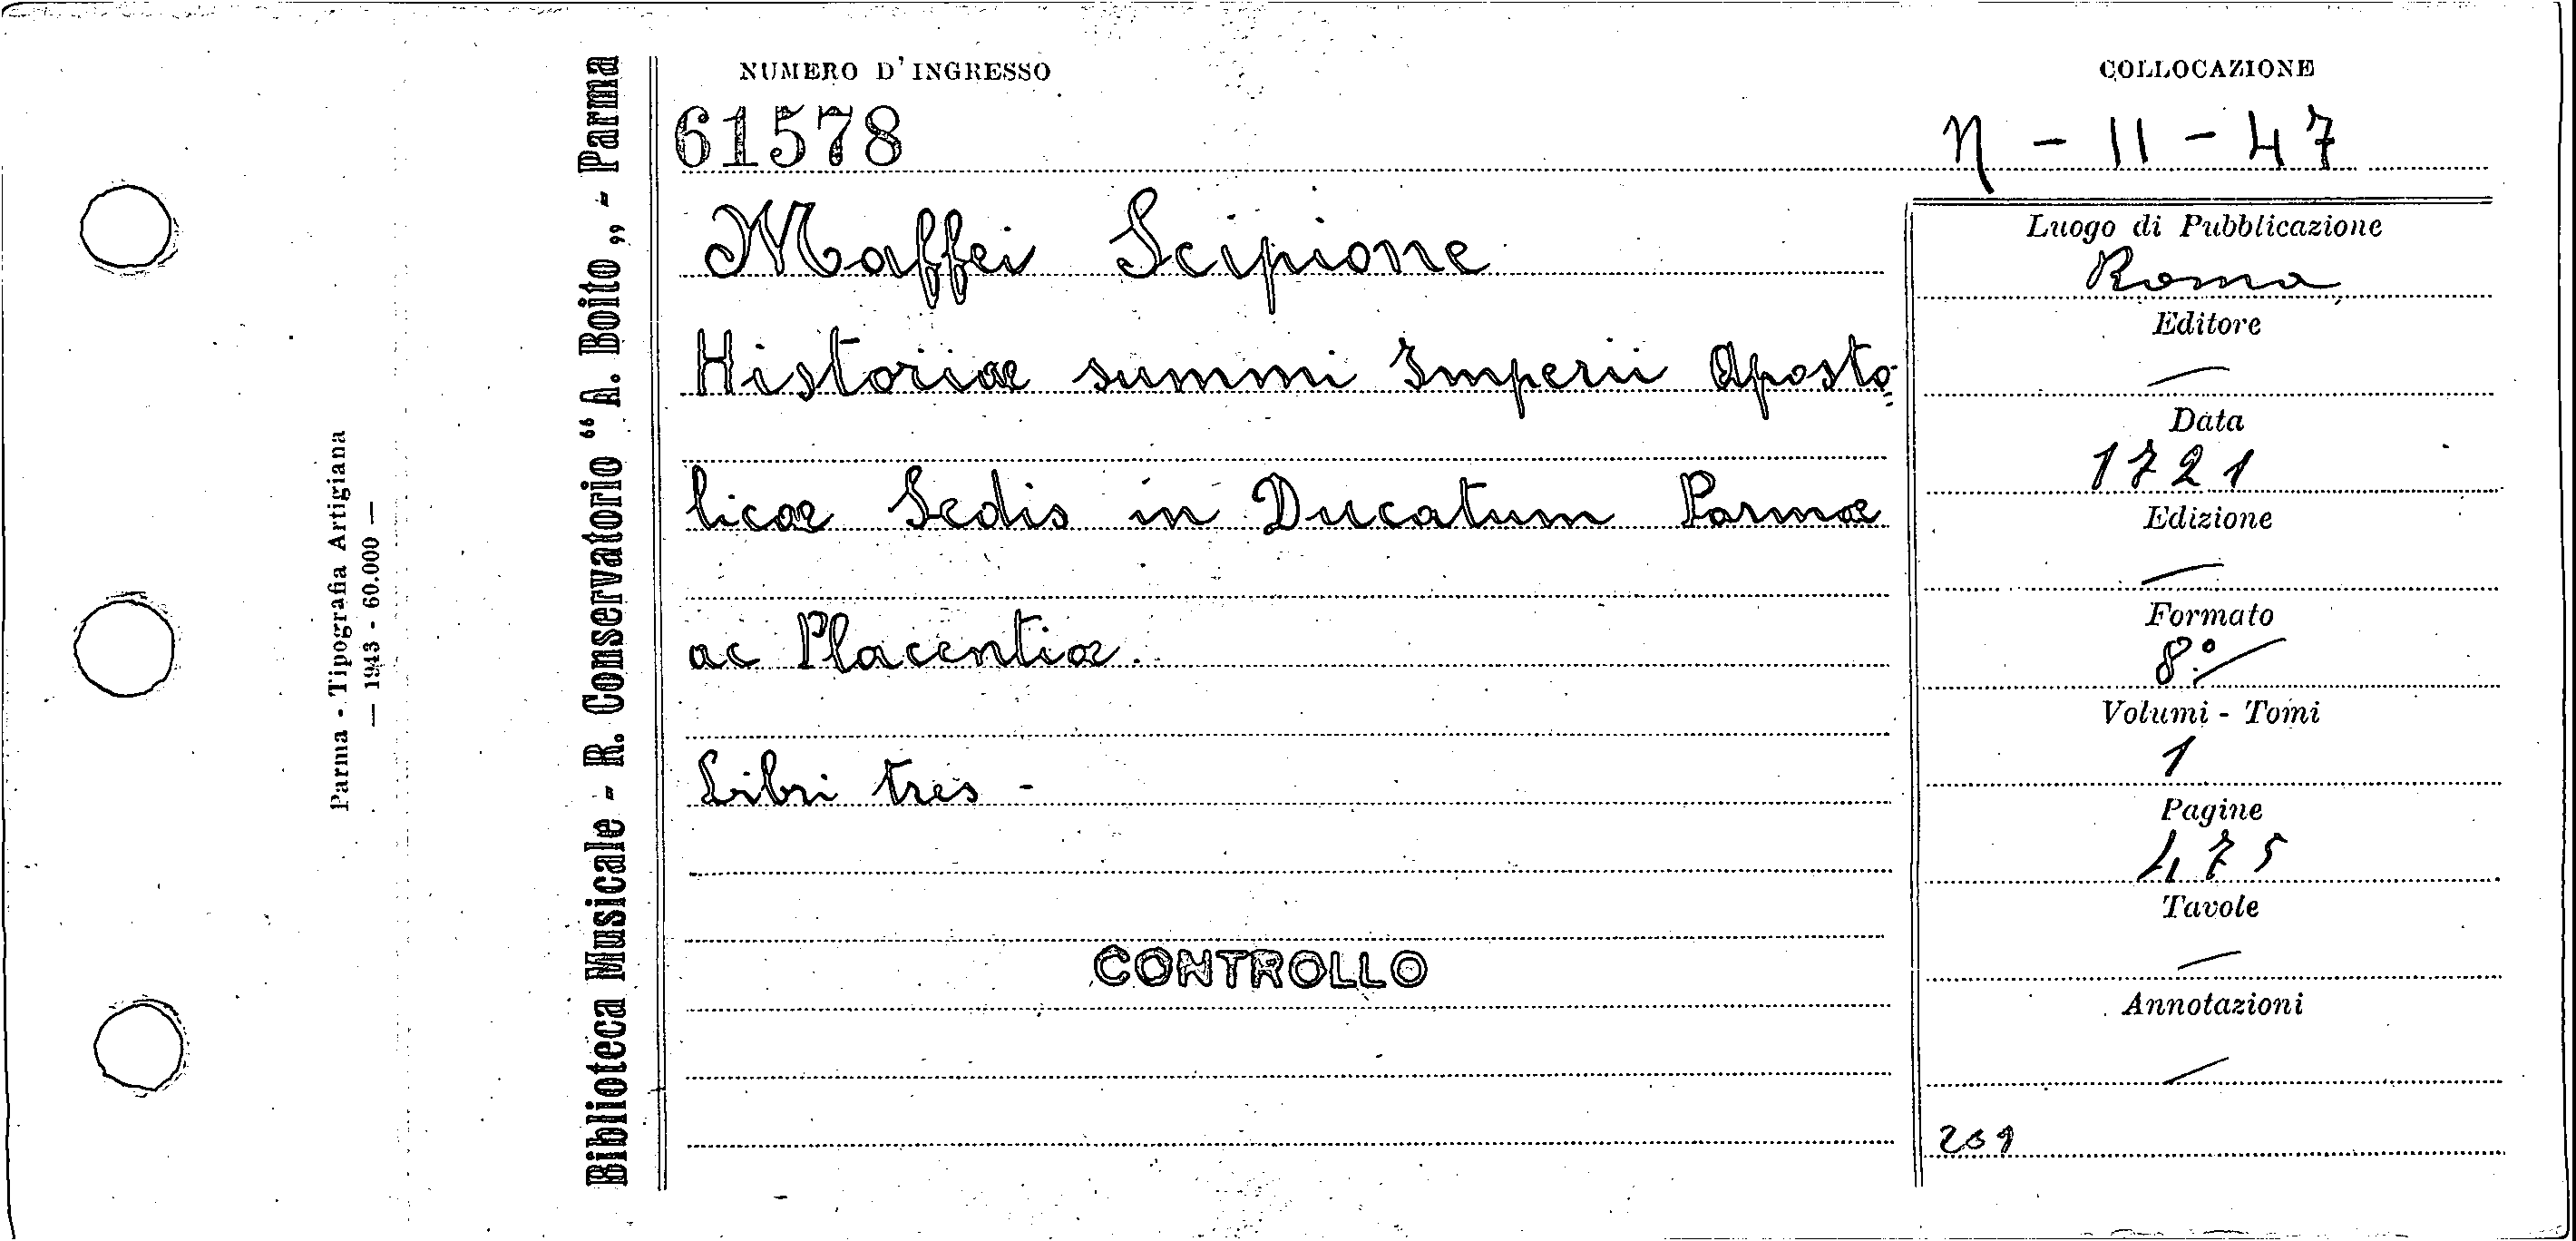 NUMERO D'INGRESSO
COLLOCAZIONE
61578
N - II - 47
Maffei Scipione
Historiae summi Imperii Aposto=
licae Sedis in Ducatum Parmae
ac Placentiae.
Libri tres -
CONTROLLO
Luogo di Pubblicazione
Roma
Editore
—
Data
1721
Edizione
—
Formato
8º
Volumi - Tomi
1
Pagine
475
Tavole
—
Annotazioni
—
Biblioteca Musicale - R. Conservatorio “A. Boito„ - Parma
Parma - Tipografia Artigiana
— 1943 - 60.000 —